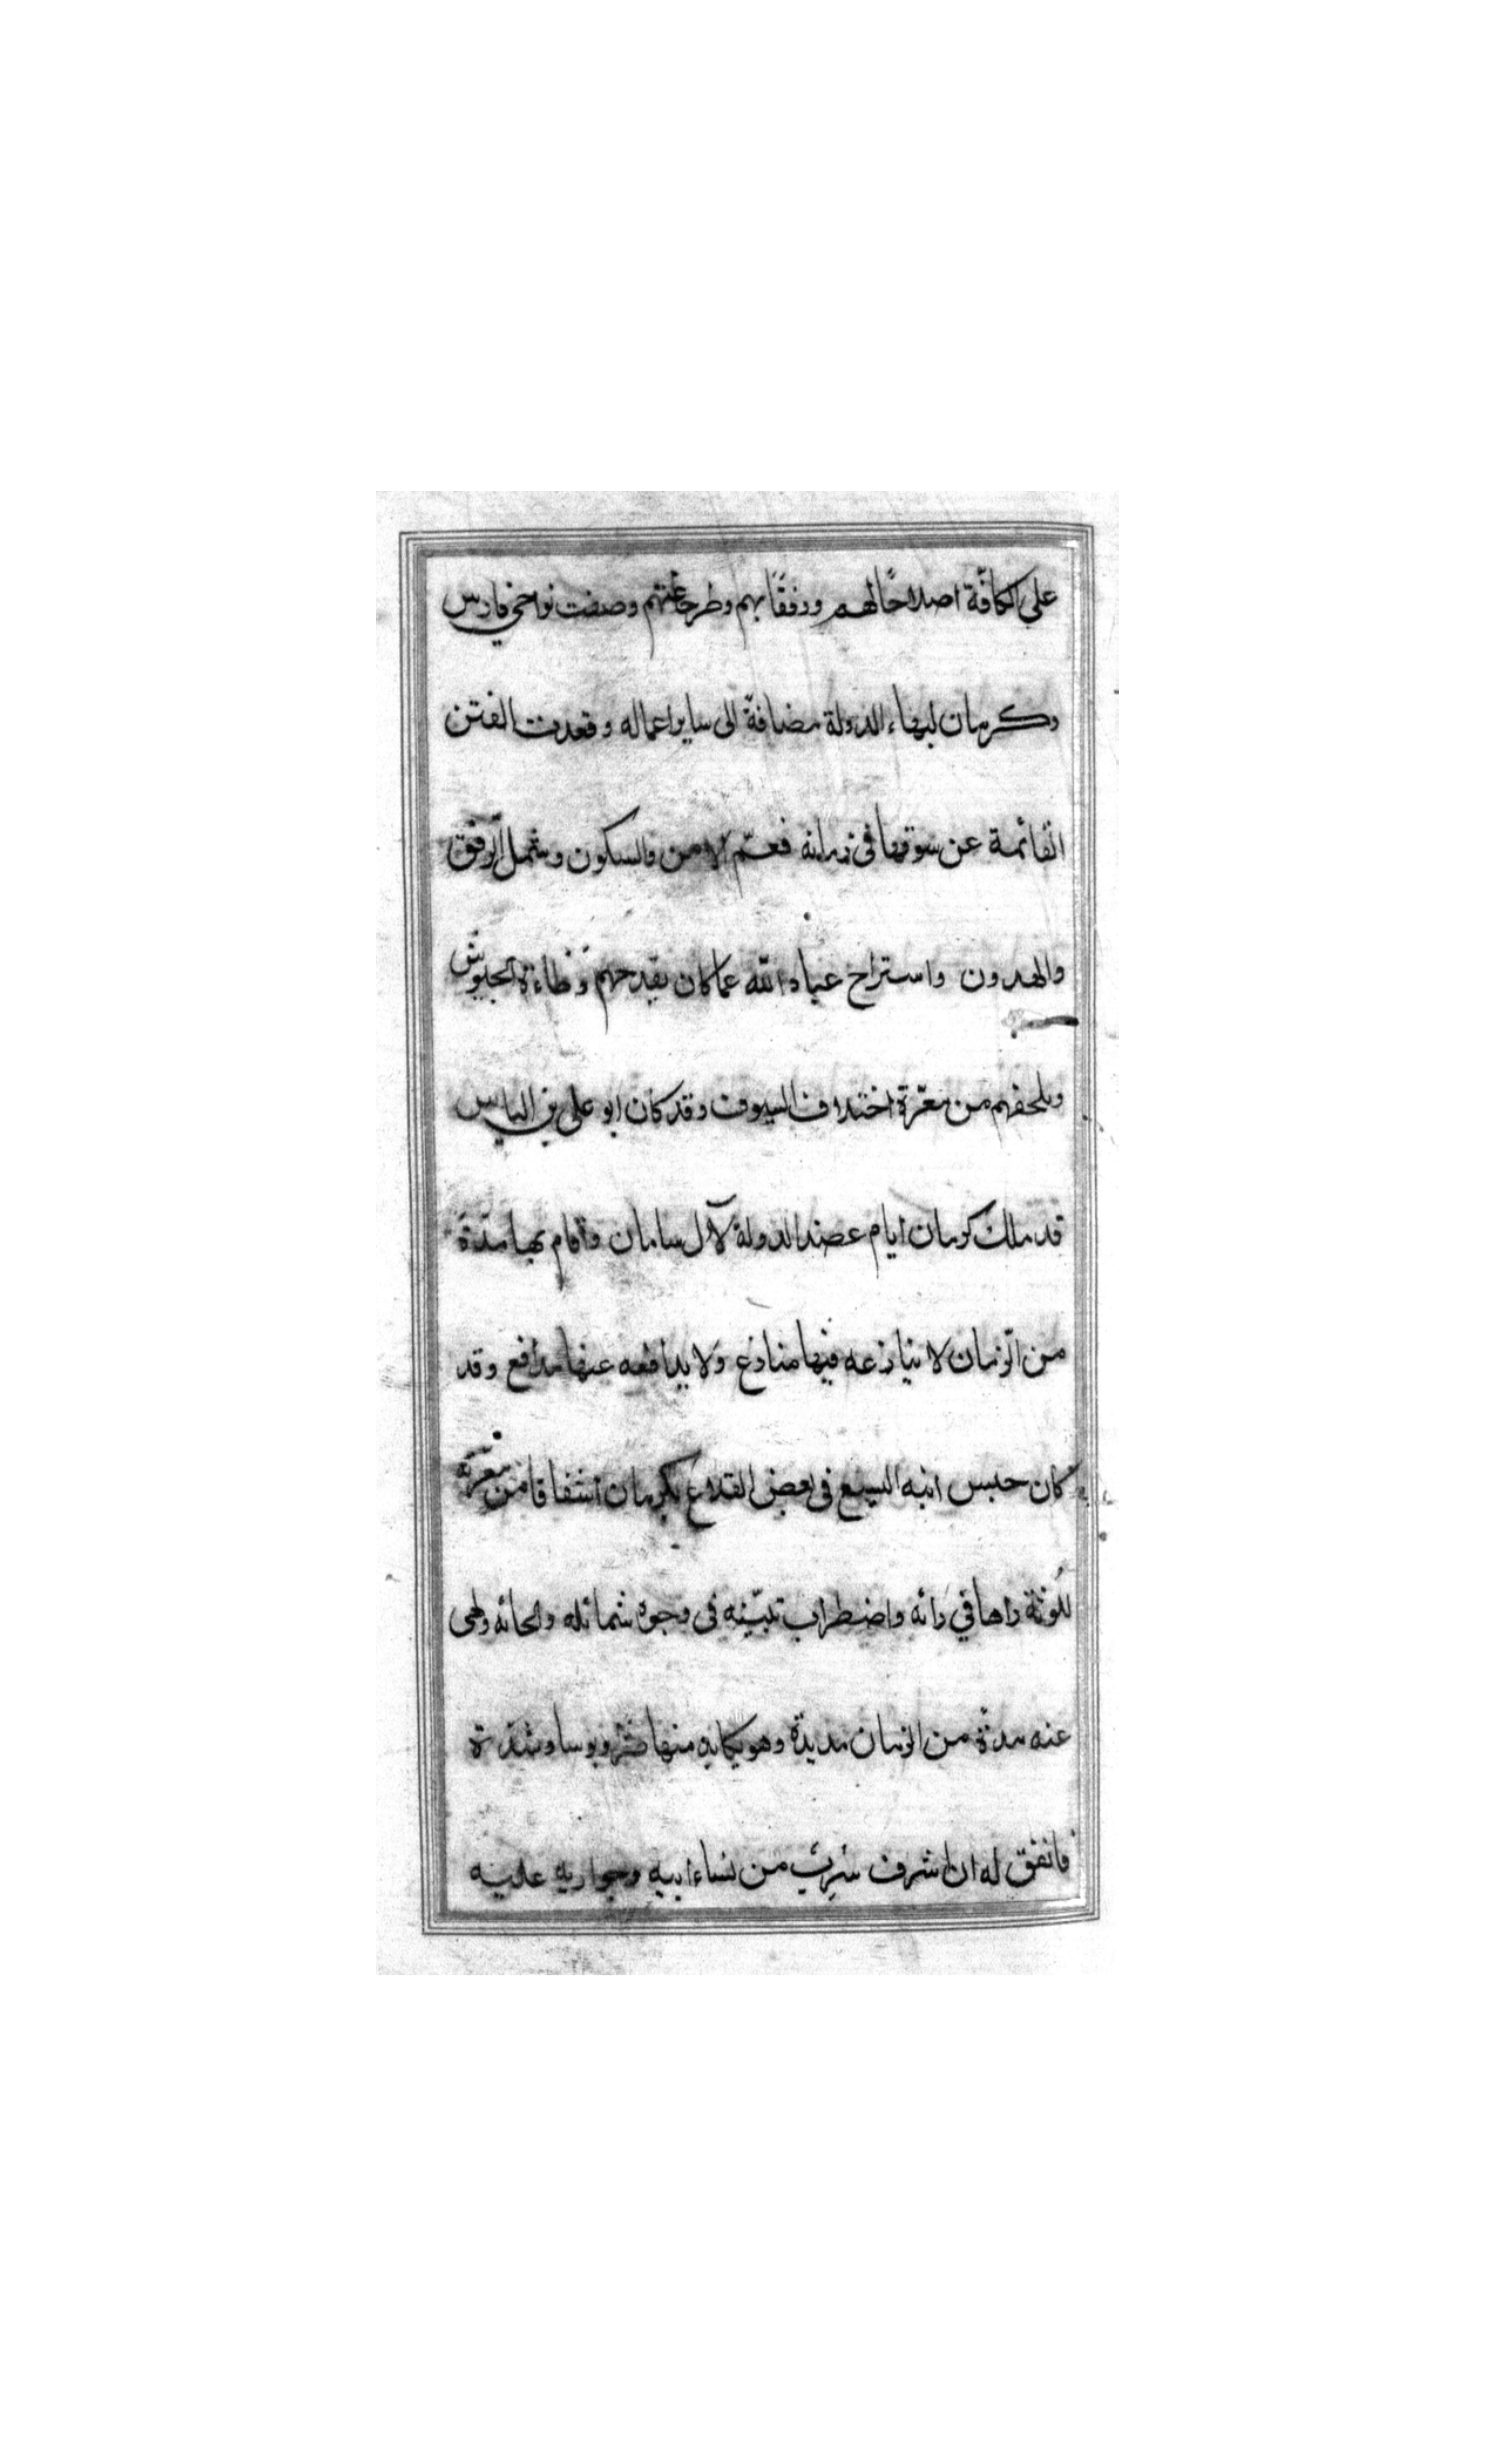 على الكافّة اصلاحًا لهم ورفقًا بهم وطرحا عنهم وصفت نواحي فارس
وكرمان لبهاء الدولة مضافةً الى ساير اعماله وقعدت الفتن
القائمة عن سوقها في زمانه فعمّ الامن والسكون وشمل الرفق
والهدون واستراح عباد الله عما كان يقدحهم وطاءة الجيوش
ويلحفهم من معرّة اختلاف السيوف وقد كان ابو علي بن الياس
قد ملك كرمان ايام عضد الدولة لآل سامان واقام بها مدّة
من الزمان لا ينازعه فيها منازع ولا يدافعه عنها مدافع وقد
كان حبس ابنه اليسع في بعض القلاع بكرمان اشفاقا من معرّته
للُوثة راها في رائه واضطراب تبيّنه في وجوه شمائله وانحائه ولهى
عنه مدّة من الزمان مديدة وهو يكابد منها ضرّ وبوسا وشدّة
فاتفق له ان اشرف سرب من نساء ابيه وجواريه عليه